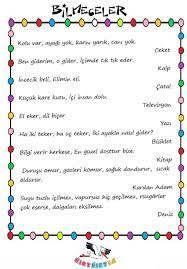 BİLMECELER
Kolu var, ayağı yok, karnı yarık, canı yok.
Ceket
Ben giderim, o gider, içimde tik tik eder.
Kalp
İncecik beli, Elimin eli.
Çatal
Küçük kare kutu, içi insan dolu
Televizyon
El eker, dil biçer
Yazı
Ha iki teker, ha üç teker, iki ayakla nasıl gider?
Bisiklet
Bilgi verir herkese, En güzel dosttur bize.
Kitap
Duruşu amar, gözleri kömar, soğuk dondurur, sıcak
öldürür.
Kardan Adam
Suyu tuzlu içilmez, vapursuz hiç geçilmez, rüzgârlar
çok eserse, dalgaları eksilmez.
Deniz